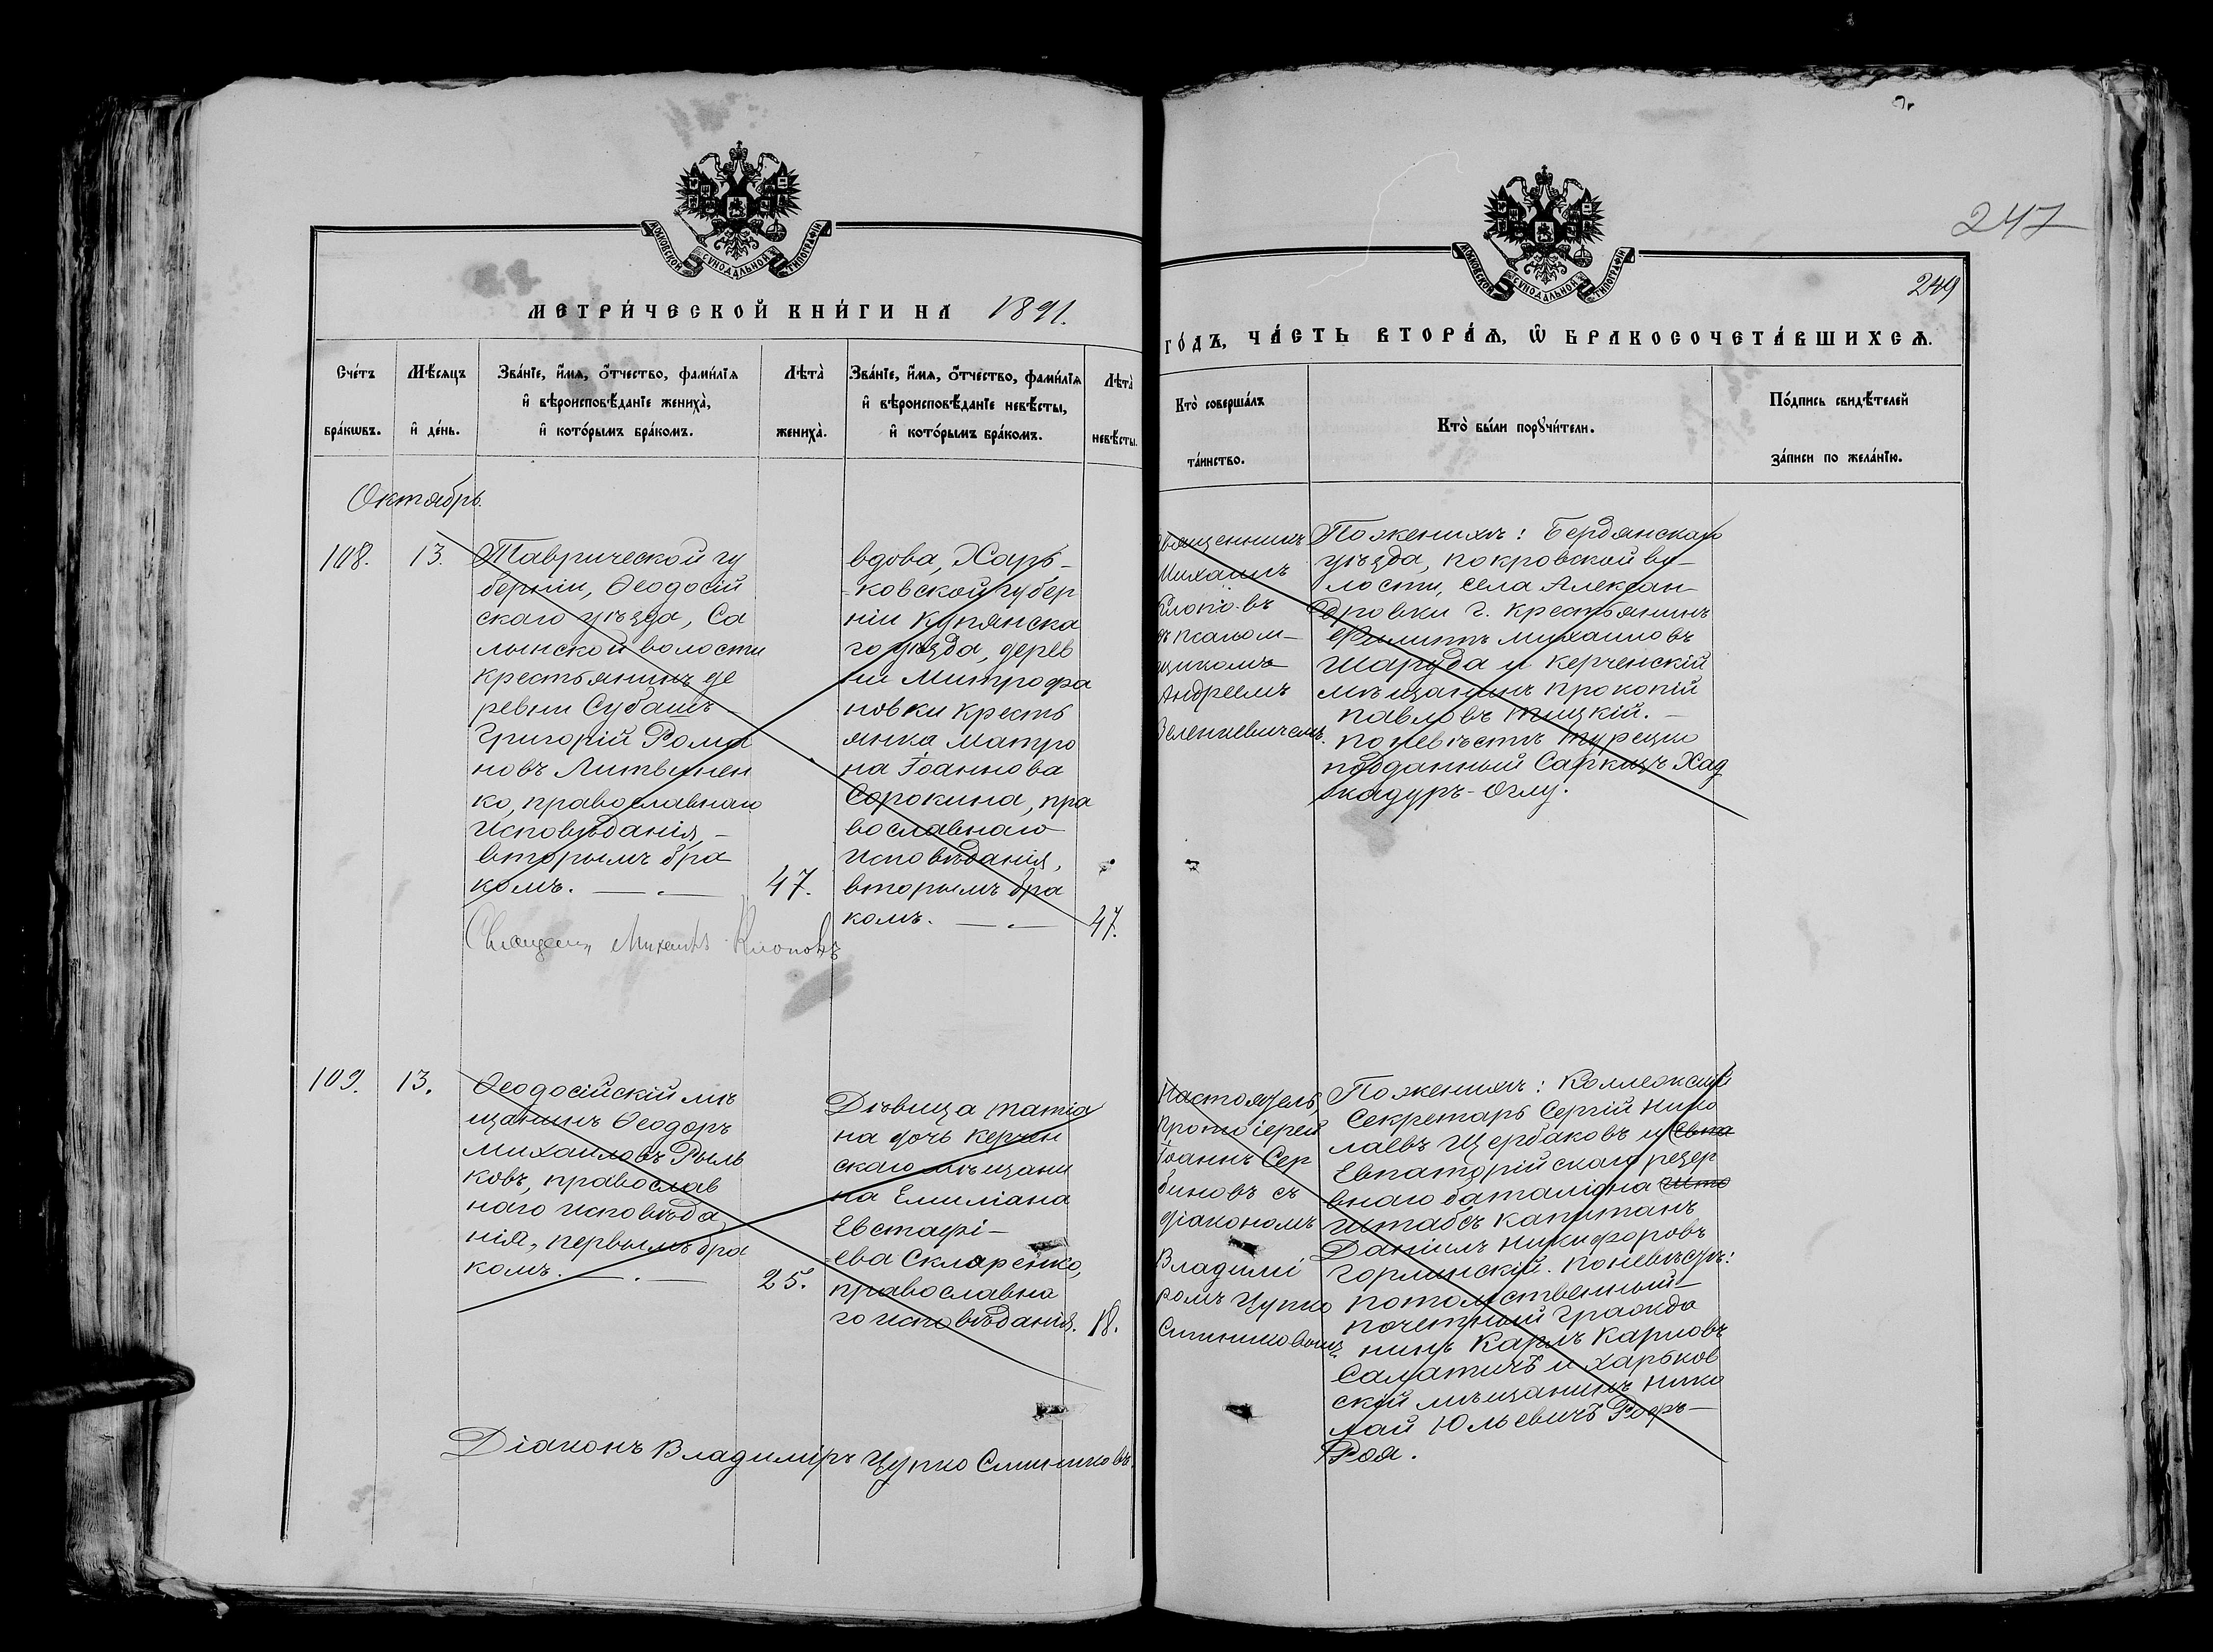 МОСКОВСКОЙ СѴНОДАЛЬНОЙ ТИПОГРАФІИ
МЕТРИ́ЧЕСКОЙ КНИ́ГИ НА 1891.
Сче́тъ
бра́кѡвъ.
Мѣ́сяцъ
и҆ де́нь.
Зва́нїе, и҆́мѧ, ѻ҆́тчество, фами́лїѧ
и҆ вѣроисповѣ́данїе жениха̀,
и҆ кото́рымъ бра́комъ.
Лѣта̀
жениха̀.
Зва́нїе, и҆́мѧ, ѻ҆́тчество, фами́лїѧ
и҆ вѣроисповѣ́данїе невѣ́сты,
и҆ кото́рымъ бра́комъ.
Лѣта̀
невѣ́сты.
Октябрь.
108.
13.
Таврической гу
берніи, Ѳеодосій
скаго уѣзда, Са
лынской волости
крестьянинъ де
ревни Субашъ
Григорій Рома
новъ Литвинен
ко, православнаго
исповѣданія, –
вторымъ бра
комъ. — . —
47.
вдова, Харь-
ковской губер
ніи Купянска
го уѣзда, дерев
ни Митрофа
новки кресть
янка Матро
на Іоаннова
Сорокина, пра
вославнаго
исповѣданія,
вторымъ бра
комъ. — . —
47.
Михаилъ Клоповъ
109.
13.
Ѳеодосійскій мѣ
щанинъ Ѳеодоръ
Михаиловъ Рыль
ковъ, православ
наго исповѣда
нія, первымъ бра
комъ. — . —
25.
Дѣвица Татіа
на дочь керчен
скаго мѣщани
на Емиліана
Евстафі-
ева Скляренко,
православна
го исповѣданія.
18.
Діаконъ Владиміръ Цупко Ситниковъ.
247
МОСКОВСКОЙ СѴНОДАЛЬНОЙ ТИПОГРАФІИ
249
ГО́ДЪ, ЧА́СТЬ ВТОРА́Ѧ, Ѡ҆ БРАКОСОЧЕТА́ВШИХСѦ.
Кто̀ соверша́лъ
та́инство.
Кто̀ бы́ли порꙋчи́тели.
По́дпись свидѣ́телей
за́писи по жела́нїю.
священникъ
Михаилъ
Клоповъ
съ псалом-
щикомъ
Андреемъ
Зеленкевичемъ.
По женихѣ: Бердянскаго
уѣзда, Покровской во-
лости, села Алексан-
дровки г. крестьянинъ
Филиппъ Михаиловъ
Шаруда и керченскій
мѣщанинъ Прокопій
Павловъ
По невѣстѣ турецко
подданный Саркизъ Хад
жадуръ-Оглу.
Настоятель,
Протоіерей
Іоаннъ Сер
биновъ съ
діакономъ
Владимі
ромъ Цупко
Ситниковымъ
По женихѣ: Коллежскій
Секретарь Сергій Нико
лаевъ Щербаковъ и
Евпаторійскаго резер
внаго баталіона
штабсъ капитанъ
Даніилъ Никифоровъ
Горлинскій. По невѣстѣ:
потомственный
почетный гражда
нинъ Карлъ Карловъ
Саматичъ и харьков
скій мѣщанинъ Нико
лай Юльевичъ